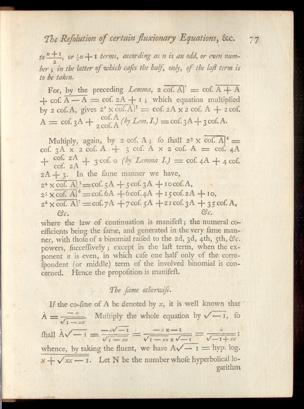 The Resolution of certain fluxionary Equations, &c. 77
to (n+1)/2, or ½n+1 terms, according as n is an odd, or even num-
ber; in the latter of which cases the half, only, of the last term is
to be taken.
For, by the preceding Lemma, 2 cos. A|² = cos. A + A
+ cos. A — A = cos. 2A + 1; which equation multiplied
by 2 cos. A, gives 2² × cos. A|³ = cos. 2A × 2 cos. A + 2 cos.
A = cos. 3A + cos. A / 2 cos. A (by Lem. I.) = cos. 3A + 3 cos. A.
Multiply, again, by 2 cos. A; so shall 2³ × cos. A|⁴ =
cos. 3A × 2 cos. A + 3 cos. A × 2 cos. A = cos. 4A
+ cos. 2A / cos. 2A + 3 cos. 0 (by Lemma I.) = cos. 4A + 4 cos.
2A + 3. In the same manner we have,
2⁴ × cos. A|⁵ = cos. 5A + 5 cos. 3A + 10 cos. A,
2⁵ × cos. A|⁶ = cos. 6A + 6 cos. 4A + 15 cos. 2A + 10,
2⁶ × cos. A|⁷ = cos. 7A + 7 cos. 5A + 21 cos. 3A + 35 cos. A,
&c. &c.
where the law of continuation is manifest; the numeral co-
efficients being the same, and generated in the very same man-
ner, with those of a binomial raised to the 2d, 3d, 4th, 5th, &c.
powers, successively; except in the last term, when the ex-
ponent n is even, in which case one half only of the corre-
spondent (or middle) term of the involved binomial is con-
cerned. Hence the proposition is manifest.
The same otherwise.
If the co-sine of A be denoted by x, it is well known that
Ȧ = —ẋ / √1—xx. Multiply the whole equation by √—1, so
shall Ȧ√—1 = —ẋ√—1 / √1—xx = —ẋ × —1 / √1—xx × √—1 = ẋ / √—1+xx;
whence, by taking the fluent, we have A√—1 = hyp. log.
x + √xx—1. Let N be the number whose hyperbolical lo-
garithm